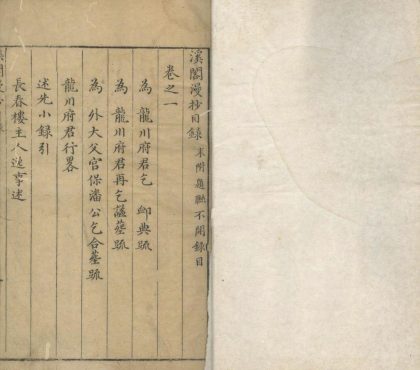 溪閣漫抄目錄 末附題聯不開錄目
卷之一
為 龍川府君乞 卹典疏
為 龍川府君再乞謚塟疏
為 外大父官保潘公乞合塟疏
龍川府君行畧
述先小錄引
長春樓主人逸事述